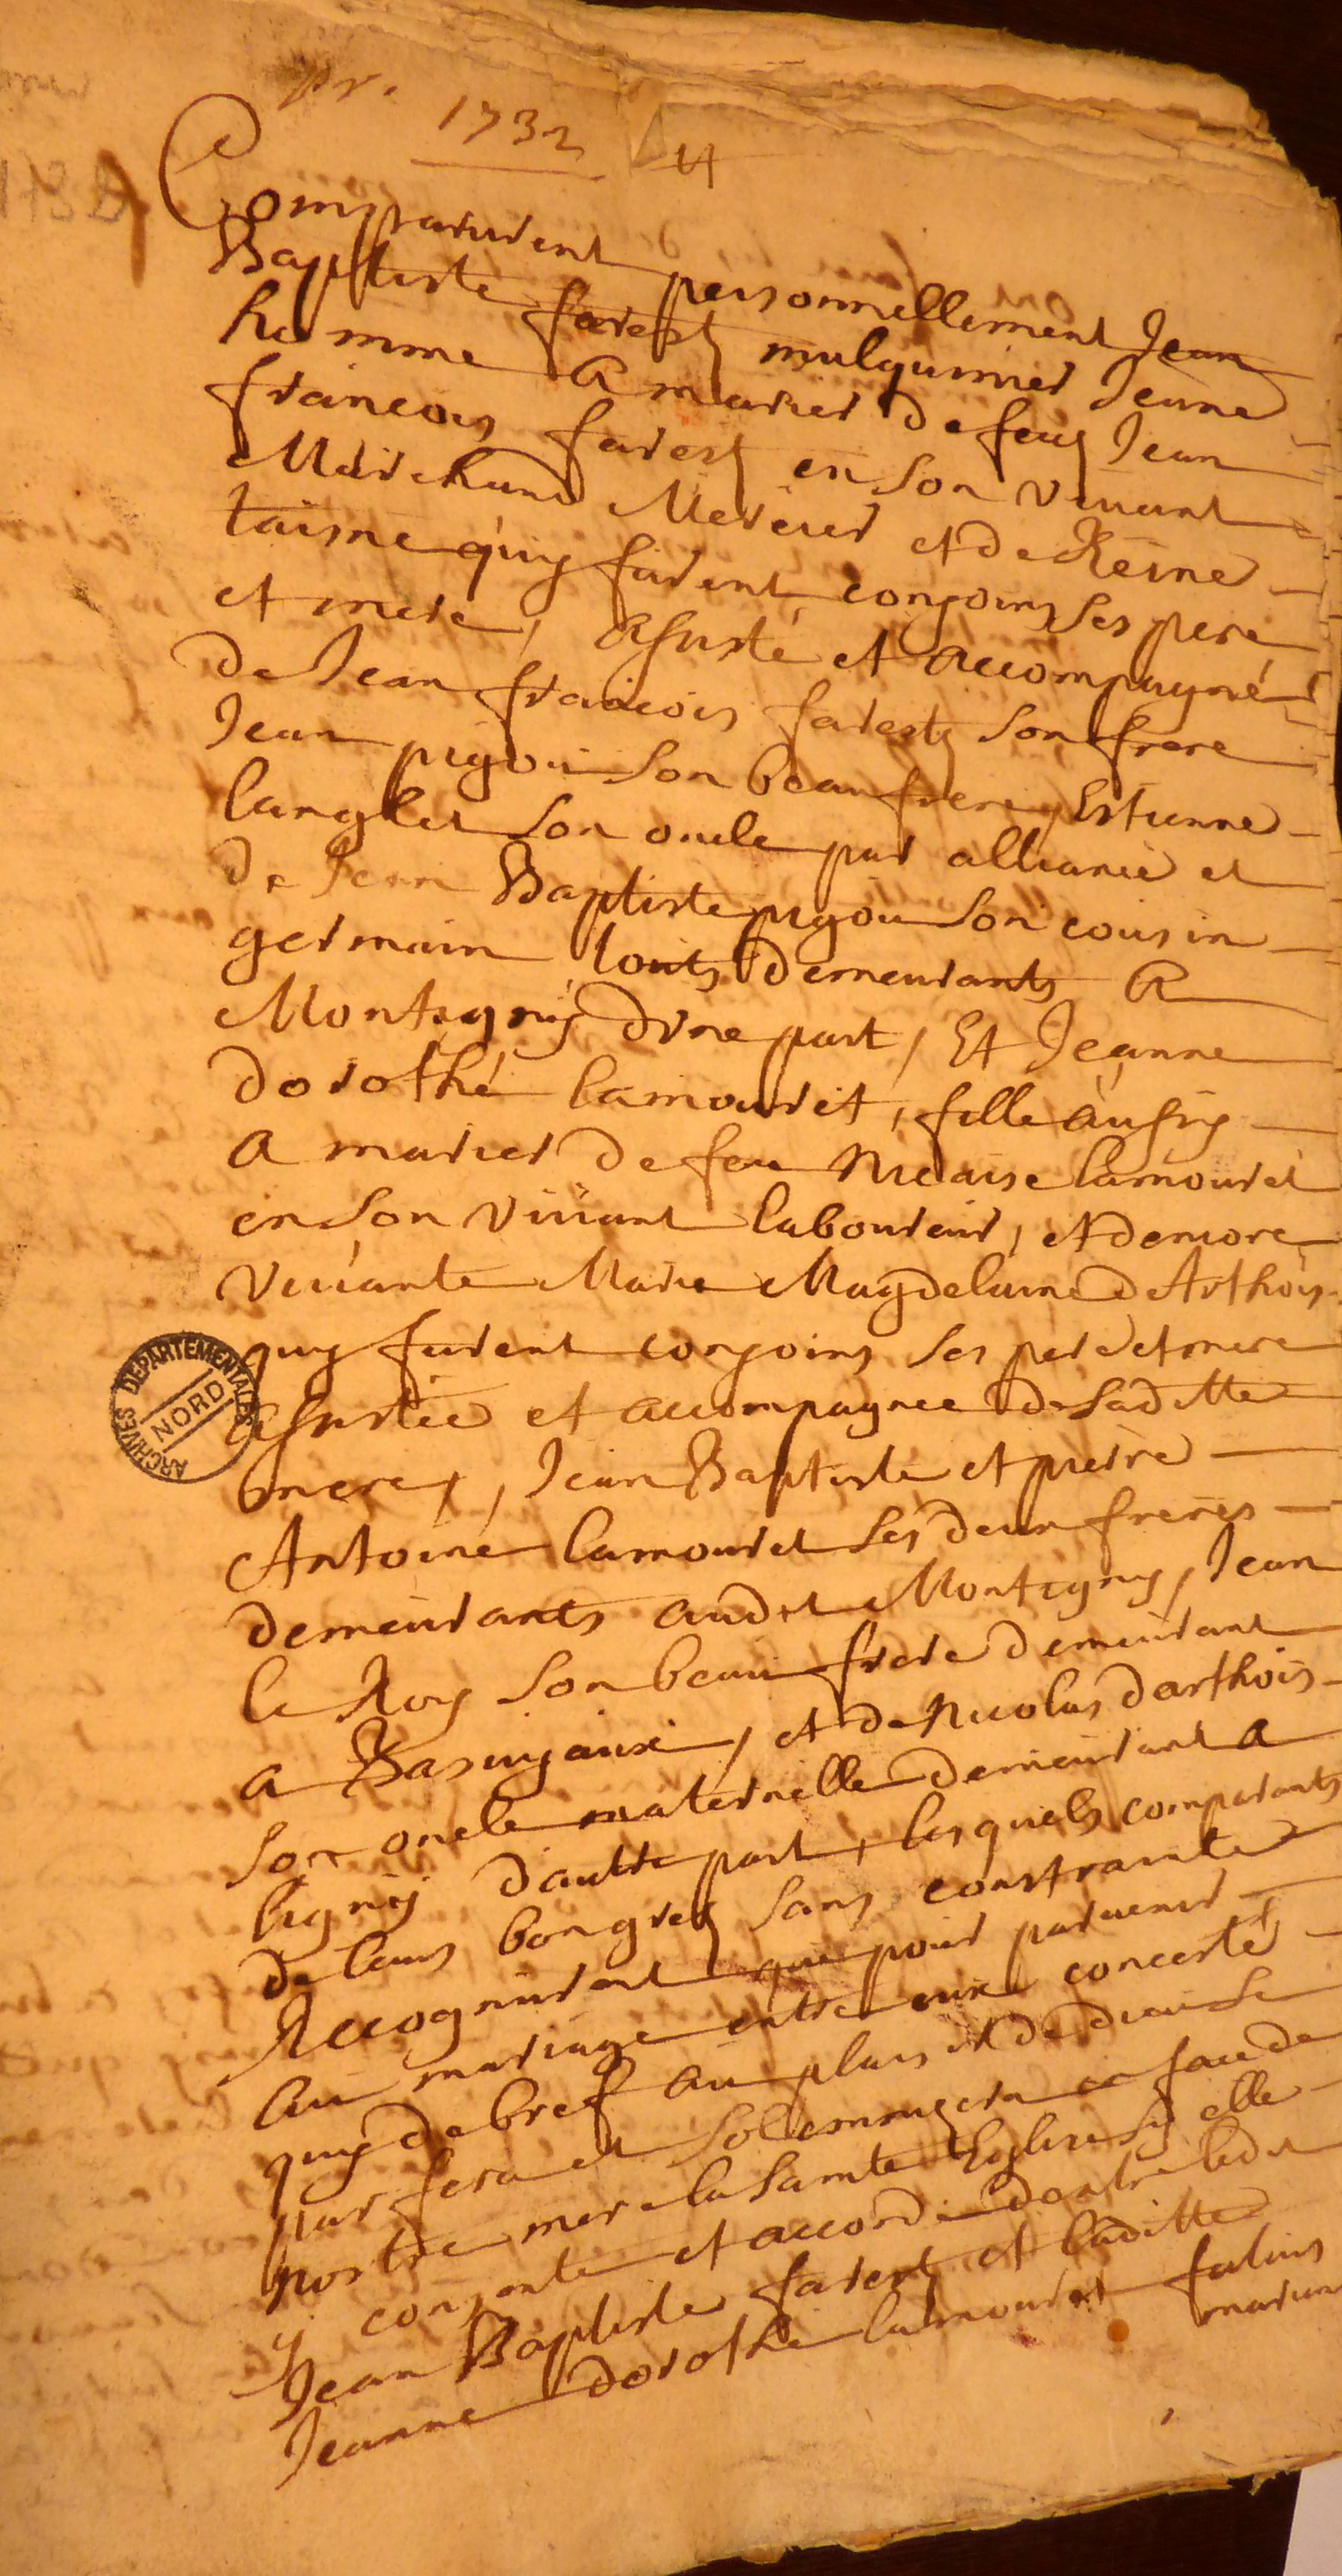 pr. 1732
Comparurent personnellement Jean
Baptiste farest mulquinier Jeune
homme A marier de feu Jean
francois farest en son vivant
Marchand Mercier et de Reine
taisne quy furent conjoins ses pere
et mere, assisté et accompagné
de Jean francois farest son frere
Jean pigou son beaufrere, Estienne
langlet son oncle par alliance et
de Jean Baptiste pigou son cousin
germain touts demeurants A
Montigny d'une part, Et Jeanne
dorothé lamouret, fille aussy
A marier de feu Nicaise lamouret
en son vivant laboureur, et d'encore
vivante Marie Magdelaine d'Arthois
quy furent conjoins ses pere et mere
Assistée et accompagnee de saditte
mere, Jean Baptiste et pierre
Antoine lamouret ses deux freres
demeurants audit Montigny, Jean
le Roy son beau frere demeurant
a Basuyaux, et de Nicolas darthois
son oncle maternelle demeurant A
ligny d'autre part, lesquels comparants
de leurs bon grez sans constrainte
Recognurent que pour parvenir
au mariage entre eux concerté
quy de bref au plaisir de dieu se
parfera et solemnizera en face de
nostre mere la Sainte Eglise sy elle
y consente et accorde d'entre ledit
Jean Baptiste farest et laditte
Jeanne dorothé lamouret futurs
marian
ARCHIVES DEPARTEMENTALES
NORD